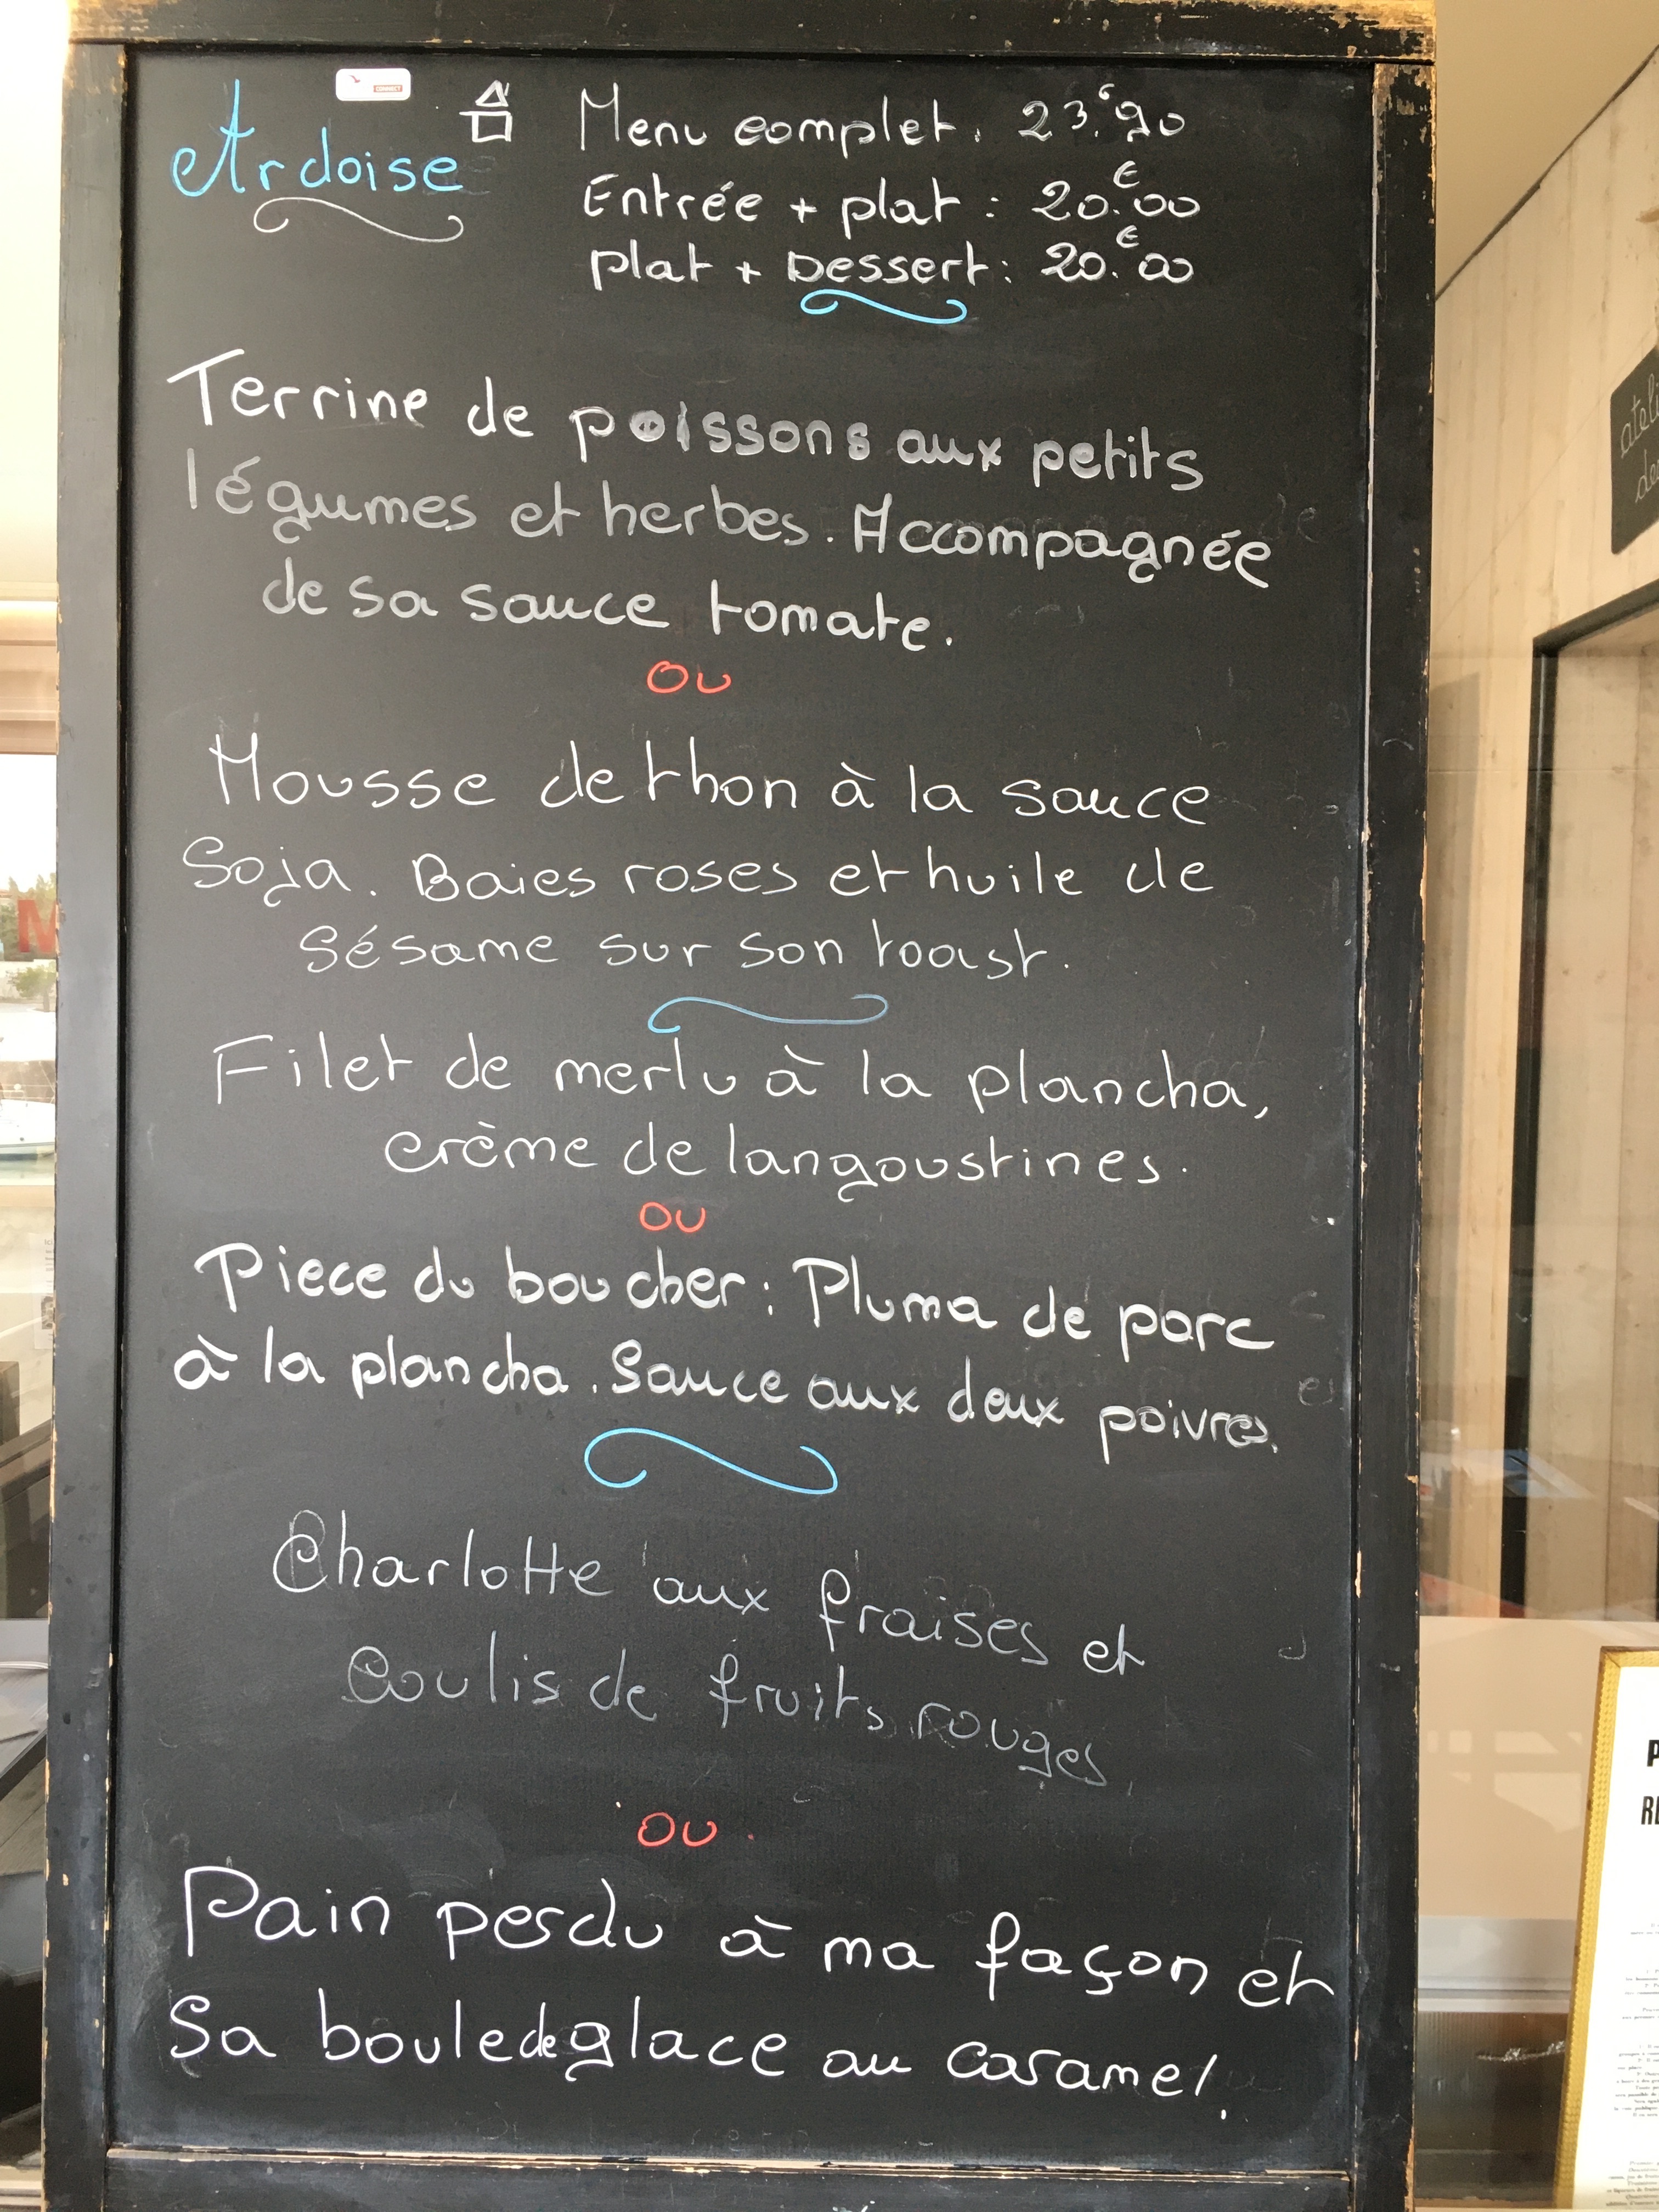 Ardoise
Menu complet. 23.€90
Entrée + plat : 20.€00
plat + Dessert : 20.€00
Terrine de poissons aux petits
légumes et herbes. Accompagnée
de sa sauce tomate.
ou
Mousse de thon à la sauce
Soja. Baies roses et huile de
sésame sur son toast.
Filet de merlu à la plancha,
crème de langoustines.
ou
Piece du boucher : Pluma de porc
à la plancha. Sauce aux deux poivres.
Charlotte aux fraises et
Coulis de fruits rouges.
ou.
Pain perdu à ma façon et
Sa boule de glace au caramel.
CONNECT
M